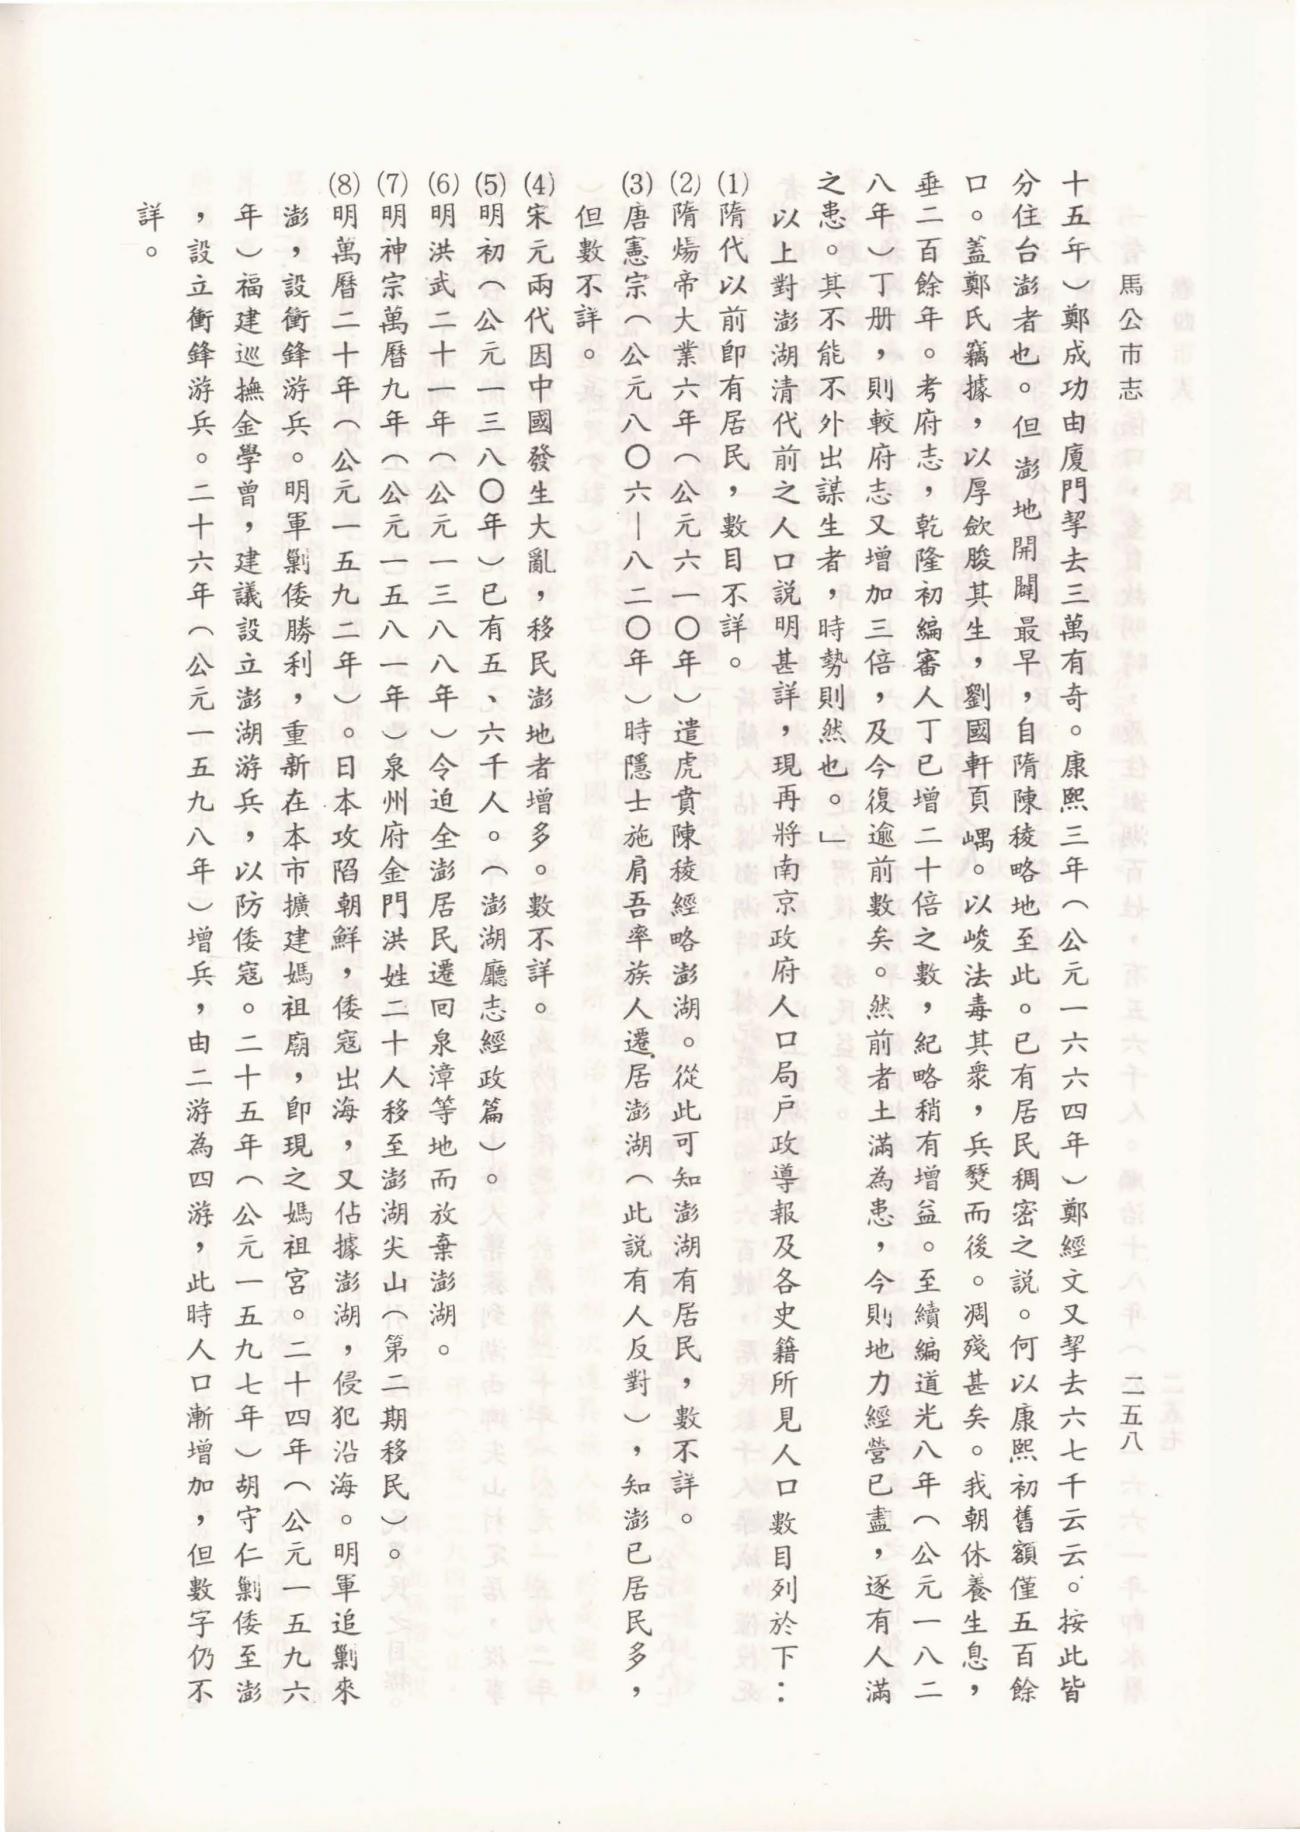 馬公市志
二五八
十五年）鄭成功由廈門挈去三萬有奇。康熙三年（公元一六六四年）鄭經文又挈去六七千云云。按此皆
分住台澎者也。但澎地開闢最早，自隋陳稜略地至此。已有居民稠密之說。何以康熙初舊額僅五百餘
口。蓋鄭氏竊據，以厚歛朘其生，劉國軒頁嵎。以峻法毒其衆，兵燹而後。凋殘甚矣。我朝休養生息，
垂二百餘年。考府志，乾隆初編審人丁已增二十倍之數，紀略稍有增益。至續編道光八年（公元一八二
八年）丁册，則較府志又增加三倍，及今復逾前數矣。然前者土滿為患，今則地力經營已盡，逐有人滿
之患。其不能不外出謀生者，時勢則然也。」
以上對澎湖清代前之人口説明甚詳，現再將南京政府人口局戶政導報及各史籍所見人口數目列於下：
(1)隋代以前即有居民，數目不詳。
(2)隋煬帝大業六年（公元六一〇年）遣虎賁陳稜經略澎湖。從此可知澎湖有居民，數不詳。
(3)唐憲宗（公元八〇六—八二〇年）時隱士施肩吾率族人遷居澎湖（此説有人反對），知澎已居民多，
但數不詳。
(4)宋元兩代因中國發生大亂，移民澎地者增多。數不詳。
(5)明初（公元一三八〇年）已有五、六千人。（澎湖廳志經政篇）。
(6)明洪武二十一年（公元一三八八年）令迫全澎居民遷回泉漳等地而放棄澎湖。
(7)明神宗萬曆九年（公元一五八一年）泉州府金門洪姓二十人移至澎湖尖山（第二期移民）。
(8)明萬曆二十年（公元一五九二年）。日本攻陷朝鮮，倭寇出海，又佔據澎湖，侵犯沿海。明軍追剿來
澎，設衝鋒游兵。明軍剿倭勝利，重新在本市擴建媽祖廟，即現之媽祖宮。二十四年（公元一五九六
年）福建巡撫金學曾，建議設立澎湖游兵，以防倭寇。二十五年（公元一五九七年）胡守仁剿倭至澎
，設立衝鋒游兵。二十六年（公元一五九八年）增兵，由二游為四游，此時人口漸增加，但數字仍不
詳。